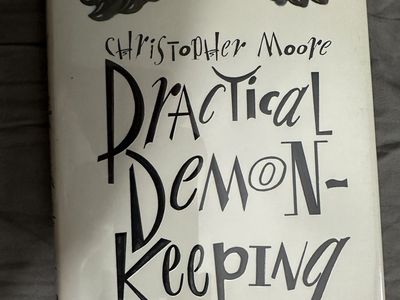 Christopher Moore
Practical
Demon-
Keeping